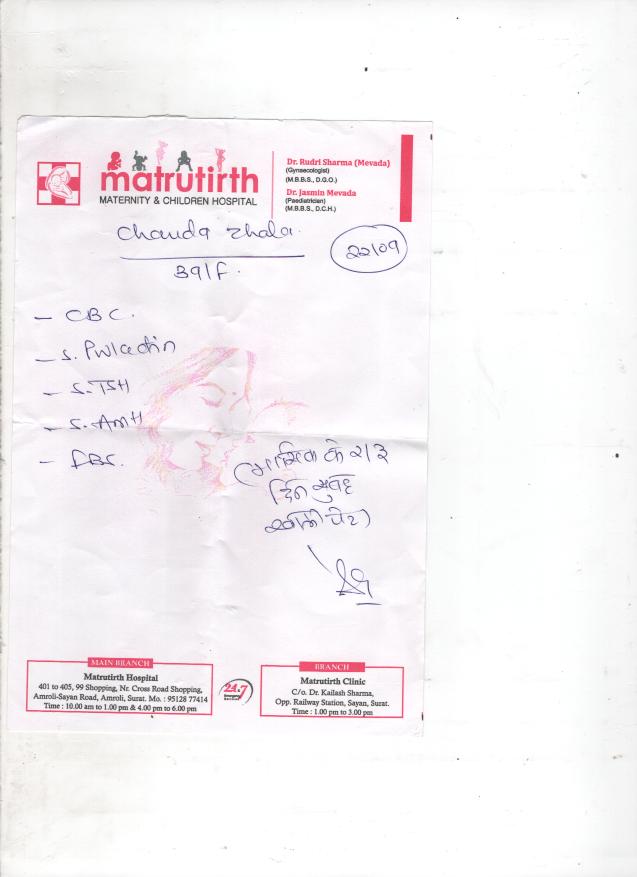 matrutirth
MATERNITY & CHILDREN HOSPITAL
Dr. Rudri Sharma (Mevada)
(Gynaecologist)
(M.B.B.S., D.G.O.)
Dr. Jasmin Mevada
(Paediatrician)
(M.B.B.S., D.C.H.)
Chanda Zhala.
22/09
39/F.
- CBC.
- S. Prolactin
- S. TSH
- S. AMH
- FBS.
(मासिक के २/३
दिन सुबह
खाली पेट)
MAIN BRANCH
Matrutirth Hospital
401 to 405, 99 Shopping, Nr. Cross Road Shopping,
Amroli-Sayan Road, Amroli, Surat. Mo. : 95128 77414
Time : 10.00 am to 1.00 pm & 4.00 pm to 6.00 pm
24.7
BRANCH
Matrutirth Clinic
C/o. Dr. Kailash Sharma,
Opp. Railway Station, Sayan, Surat.
Time : 1.00 pm to 3.00 pm